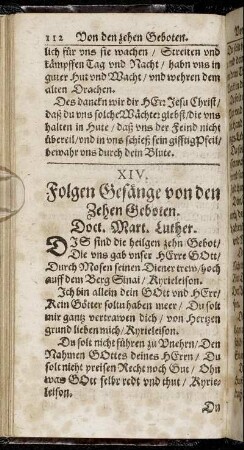 112 Von den zehen Geboten.
lich für vns sie wachen / Streiten vnd
kämpffen Tag vnd Nacht / habn vns in
guter Hut vnd Wacht / vnd wehren dem
alten Drachen.
Des dancken wir dir HErr Jesu Christ /
daß du vns solche Wächter giebst / die vns
halten in Hute / daß vns der Feind nicht
übereil / vnd in vns schieß sein gifftig Pfeil /
bewahr vns durch dein Blute.
XIV.
Folgen Gesänge von den
Zehen Geboten.
Doct. Mart. Luther.
DJS sind die heilgen zehn Gebot /
Die vns gab vnser HErre GOtt /
Durch Mosen seinen Diener trew / hoch
auff dem Berg Sinai / Kyrieleison.
Ich bin allein dein GOtt vnd HErr /
Kein Götter soltu haben meer / Du solt
mir gantz vertrawen dich / von Hertzen
grund lieben mich / Kyrieleison.
Du solt nicht führen zu Vnehrn / Den
Nahmen GOttes deines HErrn / Du
solt nicht preisen Recht noch Gut / Ohn
was GOtt selbr redt vnd thut / Kyrie-
leison.
Du